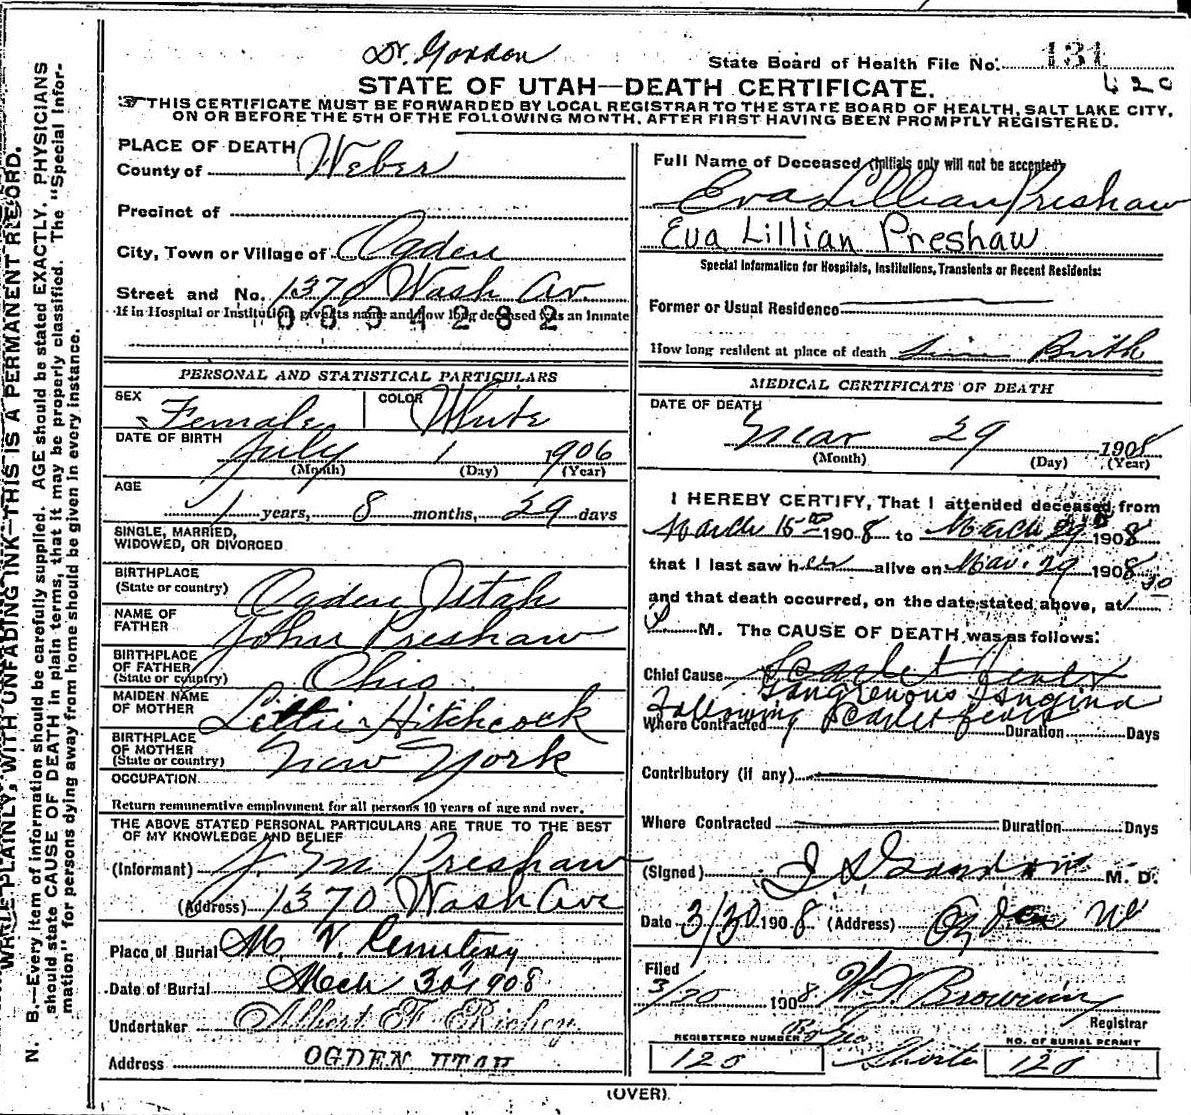 Dr. Gordon
State Board of Health File No. 131
420
STATE OF UTAH—DEATH CERTIFICATE.
THIS CERTIFICATE MUST BE FORWARDED BY LOCAL REGISTRAR TO THE STATE BOARD OF HEALTH, SALT LAKE CITY,
ON OR BEFORE THE 5TH OF THE FOLLOWING MONTH, AFTER FIRST HAVING BEEN PROMPTLY REGISTERED.
WRITE PLAINLY, WITH UNFADING INK—THIS IS A PERMANENT RECORD.
N. B.—Every item of information should be carefully supplied. AGE should be stated EXACTLY. PHYSICIANS
should state CAUSE OF DEATH in plain terms, that it may be properly classified. The "Special Infor-
mation" for persons dying away from home should be given in every instance.
PLACE OF DEATH
County of Weber
Precinct of
City, Town or Village of Ogden
Street and No. 1370 Wash Av.
If in Hospital or Institution, give its name and how long deceased was an inmate
0834282
PERSONAL AND STATISTICAL PARTICULARS
SEX Female COLOR White
DATE OF BIRTH July 1 1906
(Month) (Day) (Year)
AGE
1 years, 8 months, 29 days
SINGLE, MARRIED,
WIDOWED, OR DIVORCED
BIRTHPLACE
(State or country) Ogden Utah
NAME OF
FATHER John Preshaw
BIRTHPLACE
OF FATHER
(State or country) Ohio
MAIDEN NAME
OF MOTHER Lettie Hitchcock
BIRTHPLACE
OF MOTHER
(State or country) New York
OCCUPATION
Return remunerative employment for all persons 10 years of age and over.
THE ABOVE STATED PERSONAL PARTICULARS ARE TRUE TO THE BEST
OF MY KNOWLEDGE AND BELIEF
(Informant) J. M Preshaw
(Address) 1370 Wash Ave
Place of Burial Mt. V. Cemetery
Date of Burial Mch 30 1908
Undertaker Albert F. Richey
Address OGDEN UTAH
Full Name of Deceased (Initials only will not be accepted)
Eva Lillian Preshaw
Eva Lillian Preshaw
Special Information for Hospitals, Institutions, Transients or Recent Residents:
Former or Usual Residence
How long resident at place of death Since Birth
MEDICAL CERTIFICATE OF DEATH
DATE OF DEATH
Mar 29 1908
(Month) (Day) (Year)
I HEREBY CERTIFY, That I attended deceased from
March 15th 1908 to March 29 1908
that I last saw her alive on Mar. 29 1908
and that death occurred, on the date stated above, at 1 30
P M. The CAUSE OF DEATH was as follows:
Chief Cause Scarlet Fever
Gangrenous Angina
Following Scarlet fever
Where Contracted Duration Days
Contributory (if any)
Where Contracted Duration Days
(Signed) Gordon M. D.
Date 3/30 1908 (Address) Ogden
Filed
3/30 1908 Browning
Registrar
REGISTERED NUMBER
120
NO. OF BURIAL PERMIT
120
(OVER)